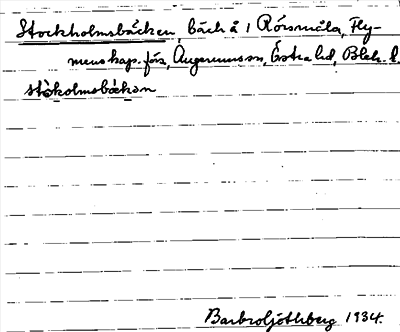 Stockholmsbäcken, bäck å 1 Rörsmåla, Fly-
menskaps. förs, Augerums sn, Östra hd, Blek. l.
stòkolmsbäkən
Barbro Ljöthberg 1934.